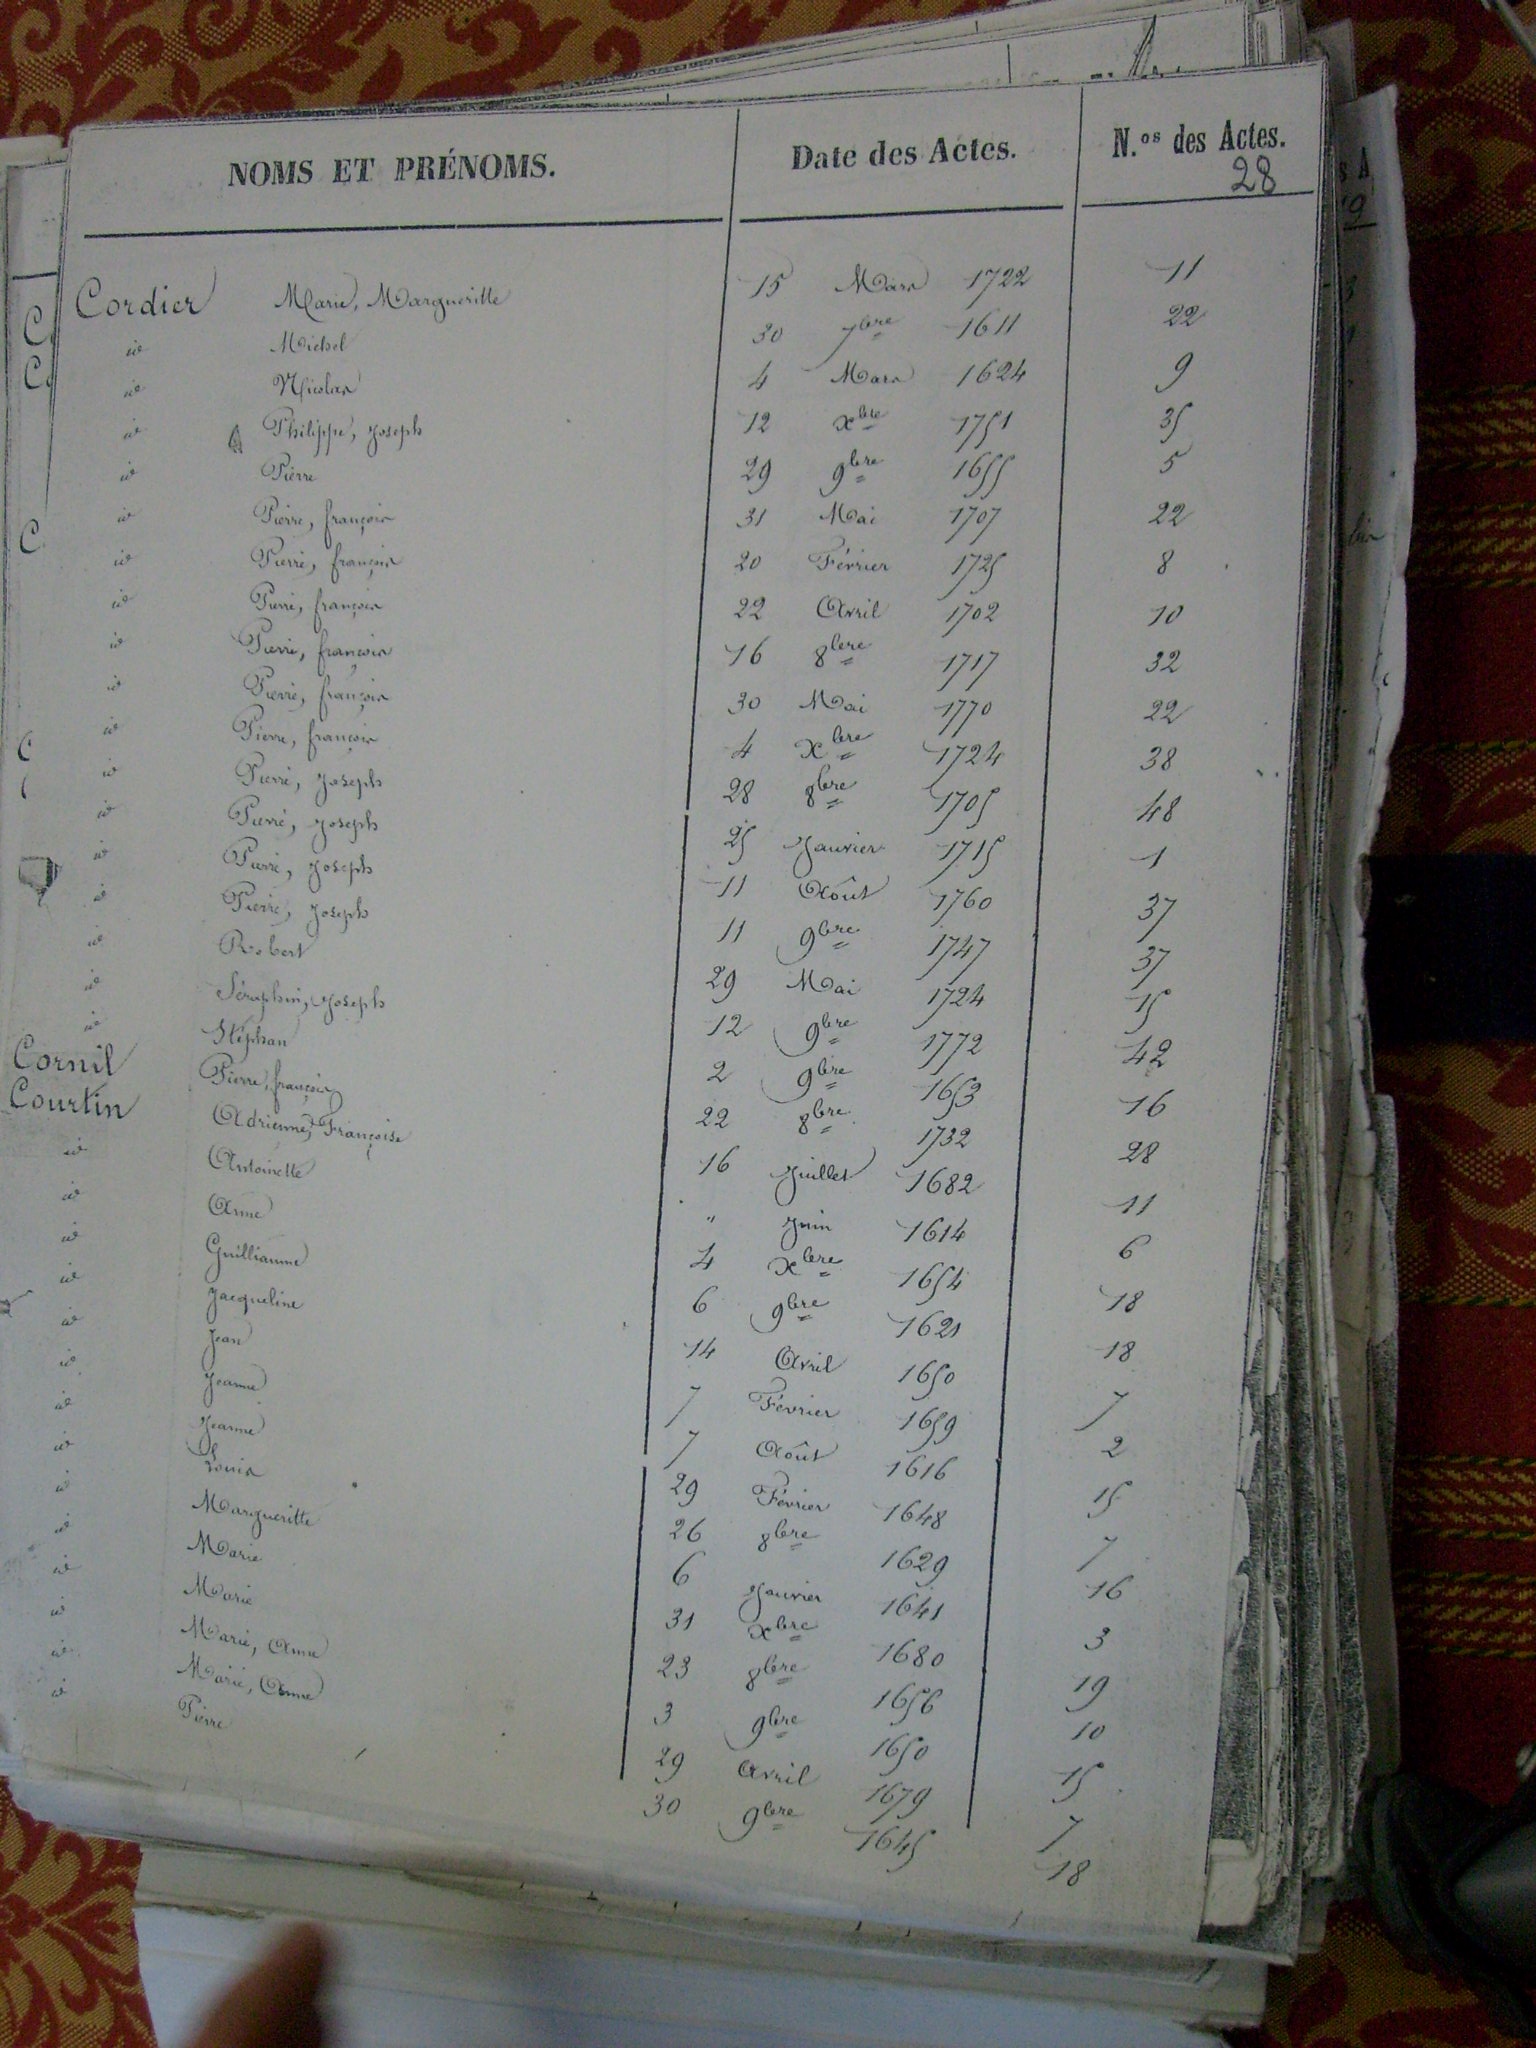 NOMS ET PRÉNOMS. Date des Actes. N.os des Actes.
28
Cordier Marie, Margueritte 15 Mars 1722 11
id Michel 30 7bre 1611 22
id Nicolas 4 Mars 1624 9
id Philippe, Joseph 12 xbre 1751 35
id Pierre 29 9bre 1655 5
id Pierre, françois 31 Mai 1707 22
id Pierre, françois 20 Février 1725 8
id Pierre, françois 22 Avril 1702 10
id Pierre, françois 16 8bre 1717 32
id Pierre, françois 30 Mai 1770 22
id Pierre, françois 4 xbre 1724 38
id Pierre, Joseph 28 8bre 1705 48
id Pierre, Joseph 25 Janvier 1715 1
id Pierre, Joseph 11 Août 1760 37
id Pierre, Joseph 11 9bre 1747 37
id Robert 29 Mai 1724 15
id Séraphin, Joseph 12 9bre 1772 42
id Stéphan 2 9bre 1653 16
Cornil Pierre, françois 22 8bre 1732 28
Courtin Adrienne, Françoise 16 Juillet 1682 11
id Antoinette " Juin 1614 6
id Anne 4 xbre 1654 18
id Guilliaume 6 9bre 1621 18
id Jacqueline 14 Avril 1650 7
id Jean 7 Février 1659 2
id Jeanne 7 Août 1616 15
id Jeanne 29 Février 1648 7
id Louis 26 8bre 1629 16
id Margueritte 6 Janvier 1641 3
id Marie 31 xbre 1680 19
id Marie 23 8bre 1656 10
id Marie, Anne 3 9bre 1650 15
id Marie, Anne 29 Avril 1679 7
id Pierre 30 9bre 1645 18